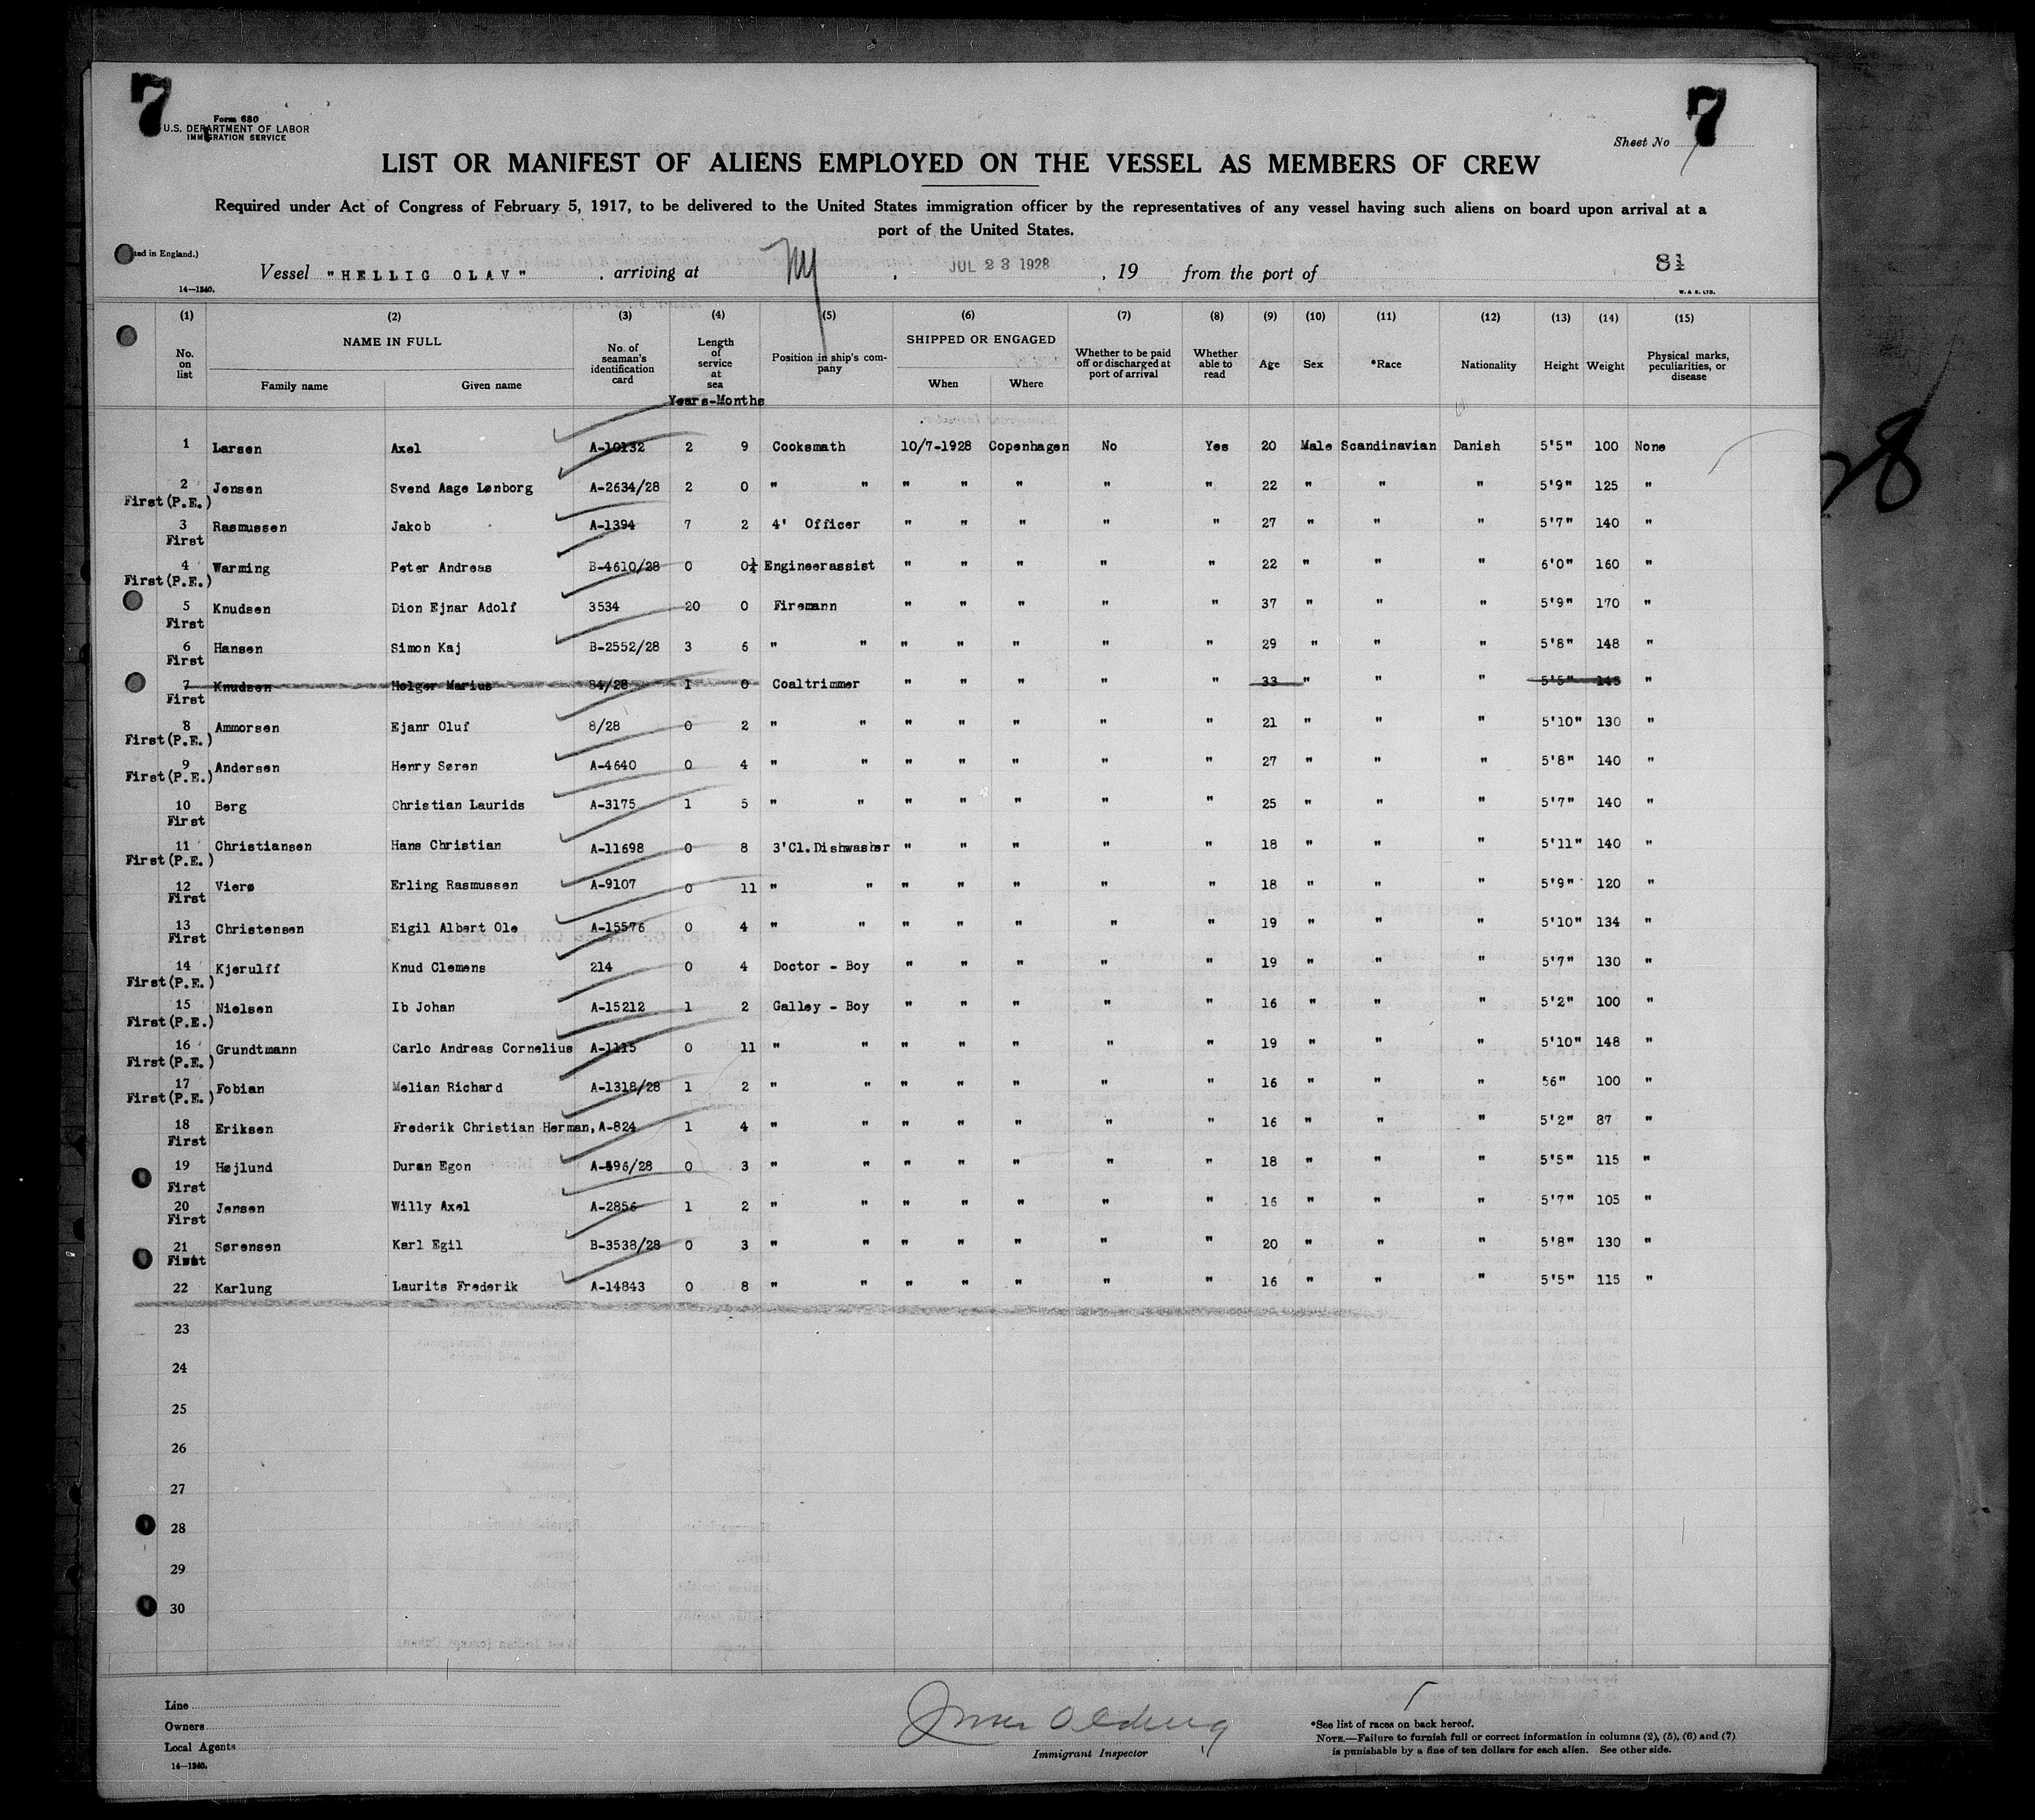 7
7
Form 680
U.S. DEPARTMENT OF LABOR
IMMIGRATION SERVICE
Sheet No
LIST OR MANIFEST OF ALIENS EMPLOYED ON THE VESSEL AS MEMBERS OF CREW
Required under Act of Congress of February 5, 1917, to be delivered to the United States immigration officer by the representatives of any vessel having such aliens on board upon arrival at a
port of the United States.
ted in England.)
Vessel "HELLIG OLAV" , arriving at NY , JUL 23 1928 , 19 from the port of 81
14—1240. W. & S. LTD.
(1) (2) (3) (4) (5) (6) (7) (8) (9) (10) (11) (12) (13) (14) (15)
No. on list NAME IN FULL Family name Given name No. of seaman's identification card Length of service at sea Position in ship's company SHIPPED OR ENGAGED When Where Whether to be paid off or discharged at port of arrival Whether able to read Age Sex *Race Nationality Height Weight Physical marks, peculiarities, or disease
Years-Months
1 Larsen Axel A-10132 2 9 Cooksmath 10/7-1928 Copenhagen No Yes 20 Male Scandinavian Danish 5'5" 100 None
2 Jensen Svend Aage Lønborg A-2634/28 2 0 " " " " " " " 22 " " " 5'9" 125 "
First(P.E.)
3 Rasmussen Jakob A-1394 7 2 4' Officer " " " " " 27 " " " 5'7" 140 "
First
4 Warming Peter Andreas B-4610/28 0 0½ Engineerassist " " " " " 22 " " " 6'0" 160 "
First(P.E.)
5 Knudsen Dion Ejnar Adolf 3534 20 0 Firemann " " " " " 37 " " " 5'9" 170 "
First
6 Hansen Simon Kaj B-2552/28 3 6 " " " " " " " 29 " " " 5'8" 148 "
First
7 Knudsen Holger Marius 84/28 1 0 Coaltrimmer " " " " " 33 " " " 5'5" 145 "
First
8 Ammorsen Ejanr Oluf 8/28 0 2 " " " " " " " 21 " " " 5'10" 130 "
First(P.E.)
9 Andersen Henry Søren A-4640 0 4 " " " " " " " 27 " " " 5'8" 140 "
First(P.E.)
10 Berg Christian Laurids A-3175 1 5 " " " " " " " 25 " " " 5'7" 140 "
First
11 Christiansen Hans Christian A-11698 0 8 3'Cl.Dishwasher " " " " " 18 " " " 5'11" 140 "
First(P.E.)
12 Vierø Erling Rasmussen A-9107 0 11 " " " " " " " 18 " " " 5'9" 120 "
First
13 Christensen Eigil Albert Ole A-15576 0 4 " " " " " " " 19 " " " 5'10" 134 "
First
14 Kjerulff Knud Clemens 214 0 4 Doctor - Boy " " " " " 19 " " " 5'7" 130 "
First(P.E.)
15 Nielsen Ib Johan A-15212 1 2 Galley - Boy " " " " " 16 " " " 5'2" 100 "
First(P.E.)
16 Grundtmann Carlo Andreas Cornelius A-1115 0 11 " " " " " " " 19 " " " 5'10" 148 "
First(P.E.)
17 Fobian Melian Richard A-1318/28 1 2 " " " " " " " 16 " " " 56" 100 "
First(P.E.)
18 Eriksen Frederik Christian Herman, A-824 1 4 " " " " " " " 16 " " " 5'2" 87 "
First
19 Højlund Duran Egon A-596/28 0 3 " " " " " " " 18 " " " 5'5" 115 "
First
20 Jensen Willy Axel A-2856 1 2 " " " " " " " 16 " " " 5'7" 105 "
First
21 Sørensen Karl Egil B-3538/28 0 3 " " " " " " " 20 " " " 5'8" 130 "
First
22 Karlung Laurits Frederik A-14843 0 8 " " " " " " " 16 " " " 5'5" 115 "
23
24
25
26
27
28
29
30
Line
Owners
Local Agents
14—1240.
Immigrant Inspector
*See list of races on back hereof.
NOTE.—Failure to furnish full or correct information in columns (2), (5), (6) and (7)
is punishable by a fine of ten dollars for each alien. See other side.